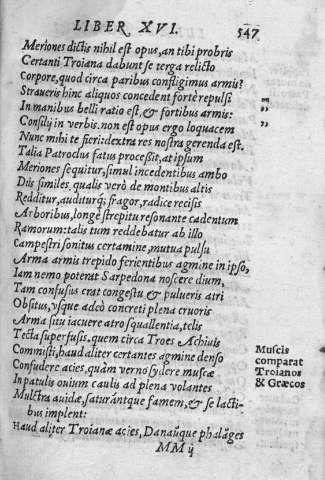 LIBER XVI. 547
Meriones dictis nihil est opus, an tibi probris
Certanti Troiana dabunt se terga relicto
Corpore, quod circa paribus confligimus armis?
Straueris hinc aliquos concedent fortè repulsi
In manibus belli ratio est, & fortibus armis: „
Consilij in verbis. non est opus ergo loquacem „
Nunc mihi te fieri: dextra res nostra gerenda est.
Talia Patrodus fatus processit, at ipsum
Meriones sequitur, simul incedentibus ambo
Diis similes. qualis verò de montibus altis
Redditur, auditurq; fragor, radice recisis
Arboribus, longè strepitu resonante cadentum
Ramorum: talis tum reddebatur ab illo
Campestri sonitus certamine, mutua pulsu
Arma armis trepido ferientibus agmine in ipso,
Iam nemo poterat Sarpedona noscere dium,
Tam confusus erat congestu & pulueris atri
Obsitus, vsque adeò concreti plena cruoris
Arma situ iacuere atro squallentia, telis
Tecta superfusis, quem circa Troes Achiuis
Commisti, haud aliter certantes agmine denso
Muscis
comparat
Troianos
& Græcos
Consudere acies, quàm verno sydere muscæ
In patulis ouium caulis ad plena volantes
Mulctra auidæ, saturántque famem, & se lacti-
bus implent:
Haud aliter Troianæ acies, Danaũque phalãges
MM ij